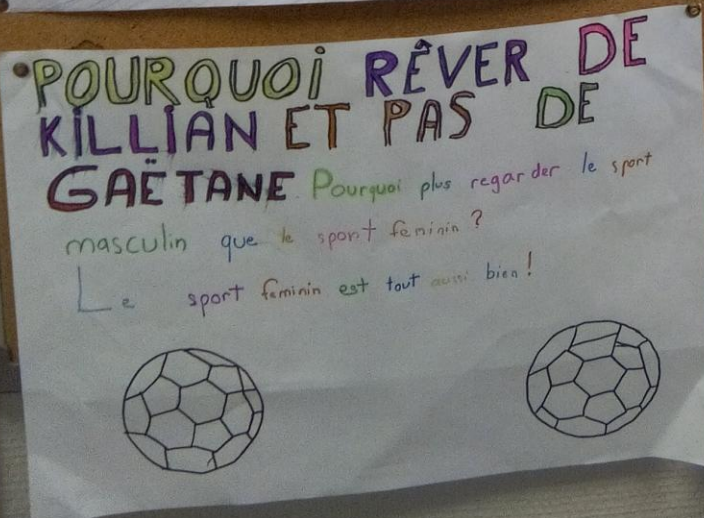 POURQUOi RÊVER DE
KiLLiAN ET PAS DE
GAËTANE Pourquoi plus regarder le sport
masculin que le sport féminin ?
Le sport feminin est tout aussi bien !